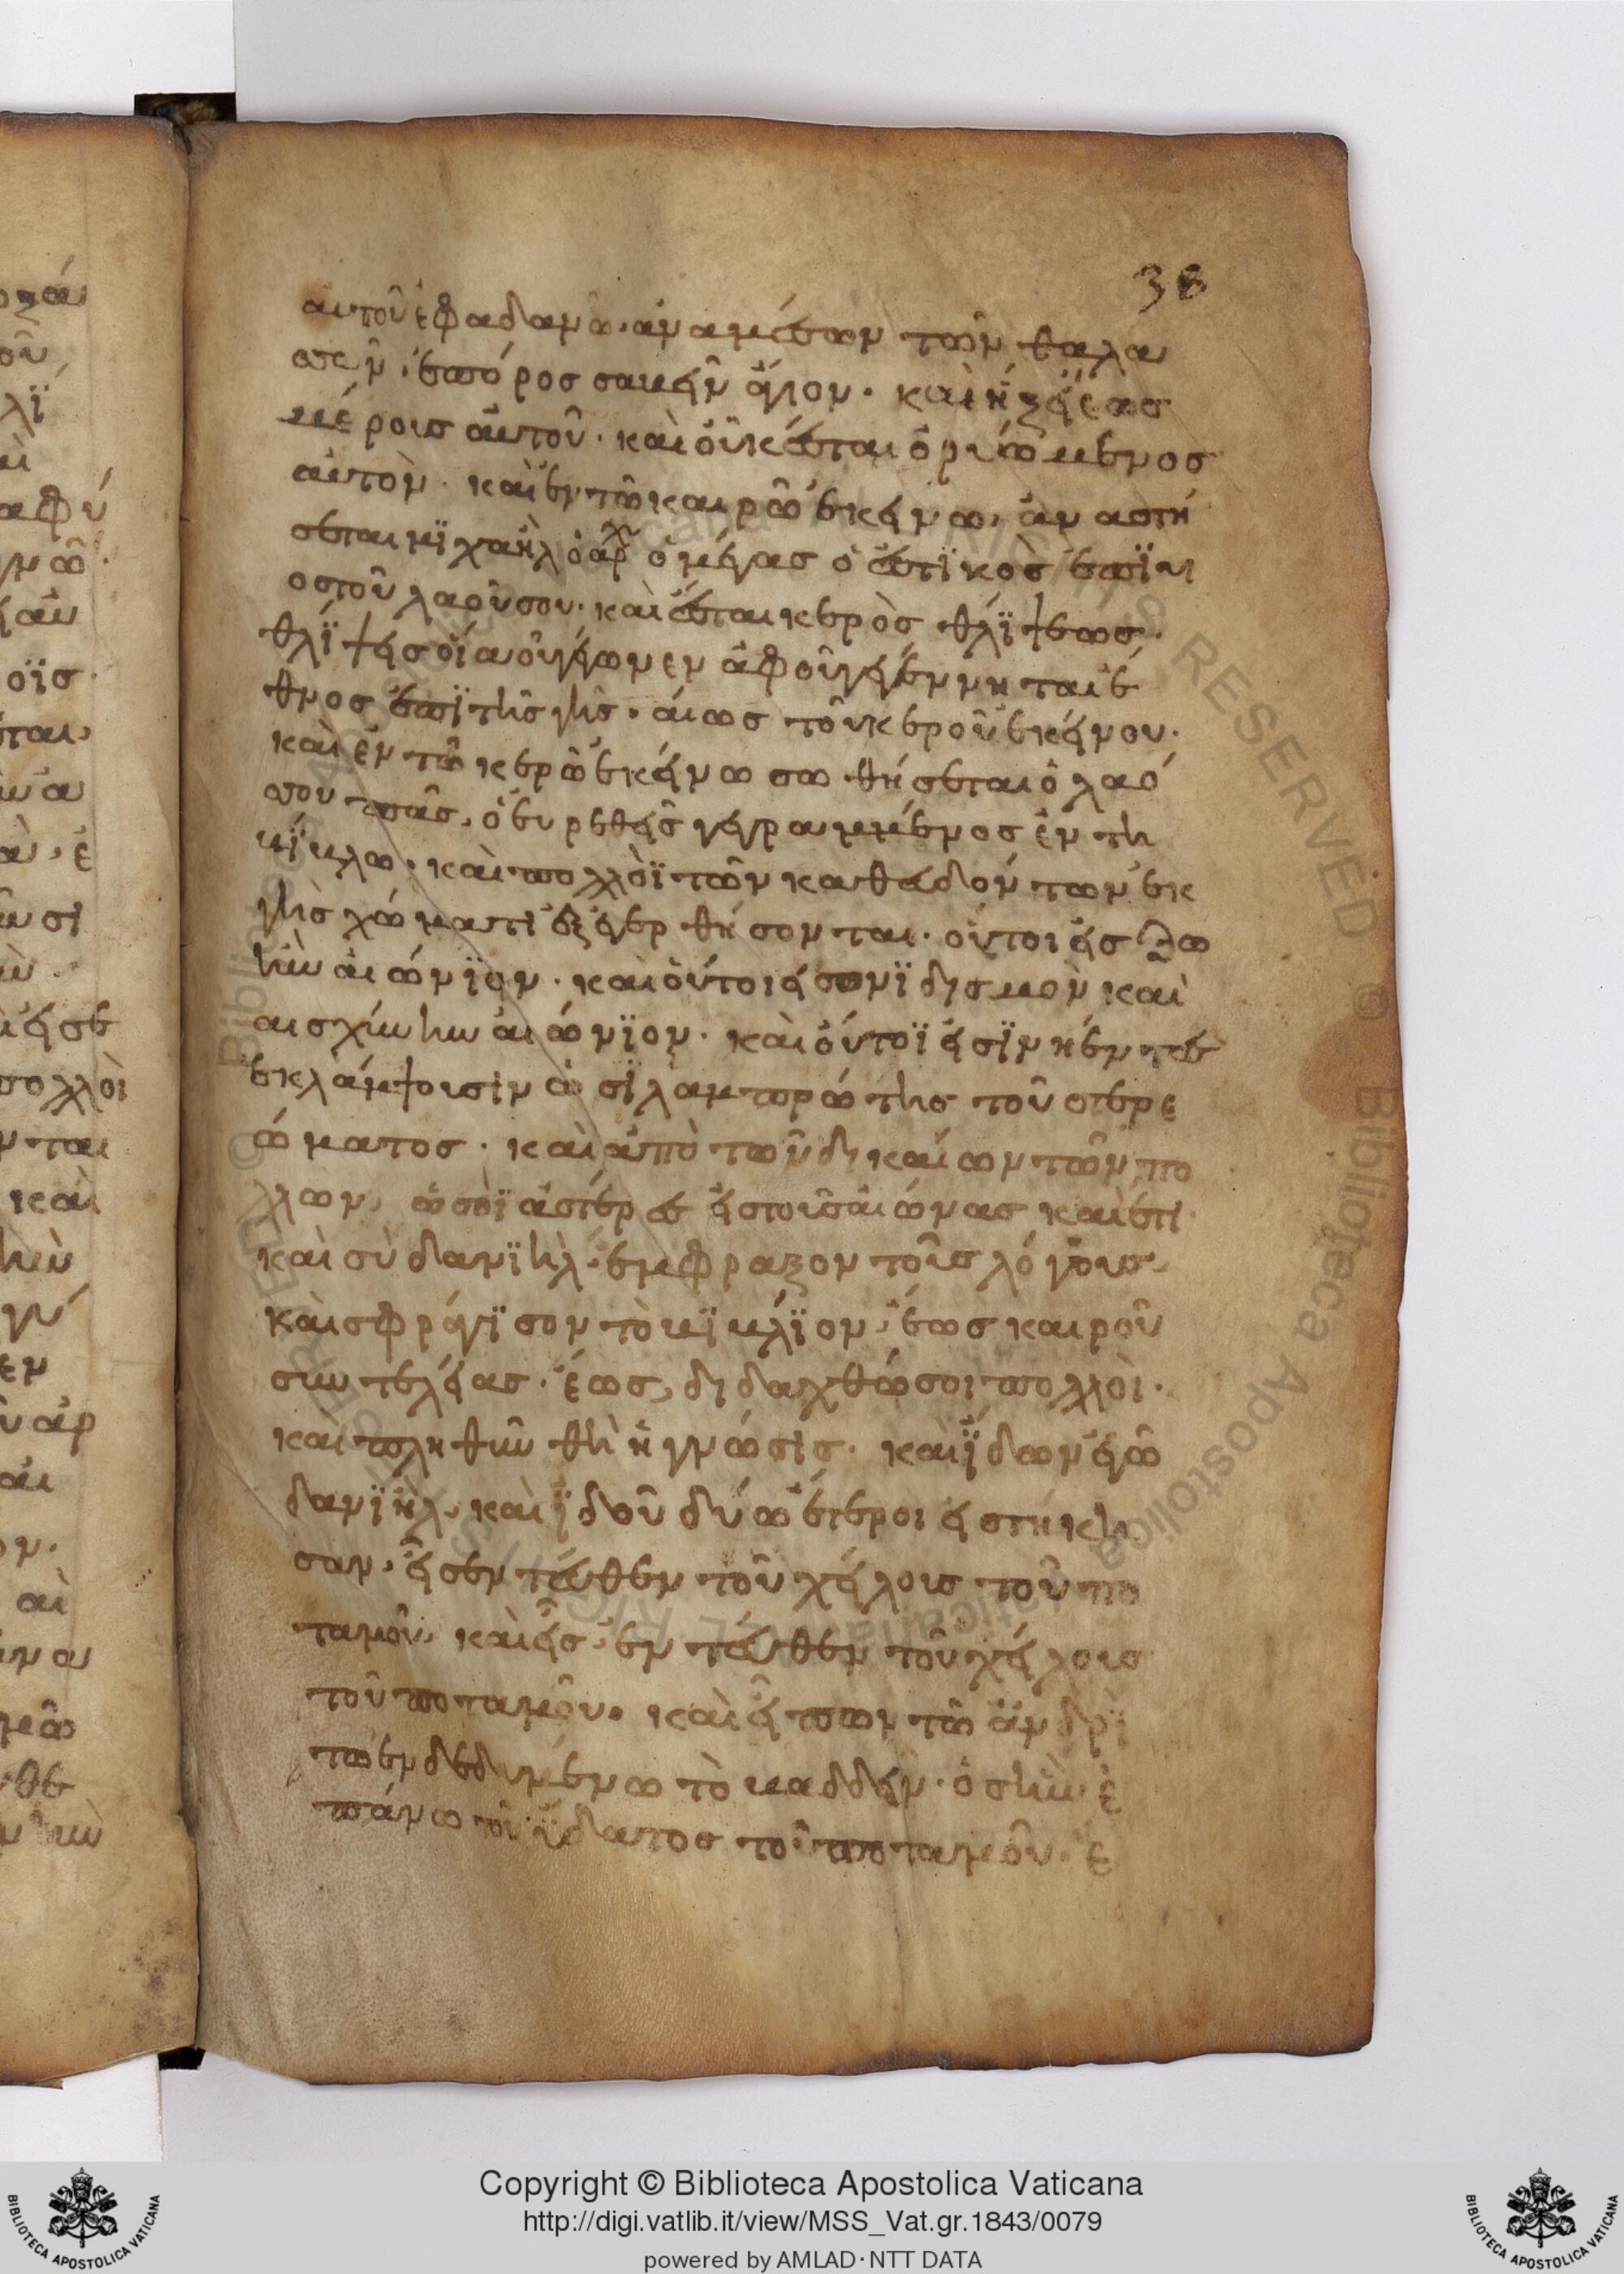 38
αυτοῦ ἐφαδαμῶ· ἀναμέσων τῶν θαλα
σσῶν· ἐσπόρος σαβεὴν ἅγιον· καὶ ἥξει ἑως
μέρους αὐτοῦ· καὶ οὐκ ἔσται ὁ ρυόμενος
αὐτὸν· καὶ ἐν τῶ καιρῶ ἐκείνω, ἀναστή
σεται μϊχαὴλ ὁ ἀρχ ὁ μέγας ὁ ἐστϊκὸς ἐπϊ υι
οστοῦ λαοῦ σου· καὶ ἔσται κερὸς θλΐψεως·
θλΐψεις οἵα οὐ γέγωνεν ἀφοῦ γεγένηται ἔ
θνος ἐπΐ τῆς γῆς· αίως τοῦ κεροῦ ἐκείνου·
καὶ ἐν τῶ κερῶ ἐκείνω σωθήσεται ὁ λαό
σου πᾶς, ὁ ευρεθεὶς γεγραμμένος ἐν τῆ
βΐβλω· καὶ πολλοὶ τῶν καθευδόντων ἐκ
γῆς χώματι ἐξεγερθήσονται· οὗτοι εἰς ζω
ὴν αιώνϊον· καὶ οὗτοι εἰς ονϊδησμὸν καὶ
αισχύνην αιώνϊον· καὶ οὗτοϊ εἰ σϊνηέντες
ἐκλάμψουσιν ὠσΐ λαμπρώτης τοῦ στερε
ώματος· καὶ ἀπὸ τῶν δηκαίων τῶν πο
λλων, ὡσεὶ ἀστέρες εἰς τοὺς αιώνας καὶ ἔτι·
καὶ σὺ δανϊὴλ ἔμφραξον τοὺς λόγους
καὶ σφράγϊσον τὸ βϊβλΐον, ἕως καιροῦ
συντελείας· ἕως, δηδαχθώσοι πολλοὶ·
καὶ πληθυνθὴ ἡ γνώσις· καὶ ϊδων ἐγῶ
δανϊὴλ, καὶ ϊδοῦ δύω ἕτεροι εἱστήκη
σαν, εἷς εντεύθεν τοῦ χείλους τοῦ πο
ταμοῦ, καὶ εἷς ἐντεύθεν τοῦ χείλους
τοῦ ποταμοῦ· καὶ εἶπων τῶ ἀνδρὶ
τω ενδεδυμένω τὸ βαδδεὶν· ὁς ἦν ἐ
πάνω τοῦ ὕδατος τοῦ ποταμοῦ· ἑ
Copyright © Biblioteca Apostolica Vaticana
http://digi.vatlib.it/view/MSS_Vat.gr.1843/0079
powered by AMLAD·NTT DATA